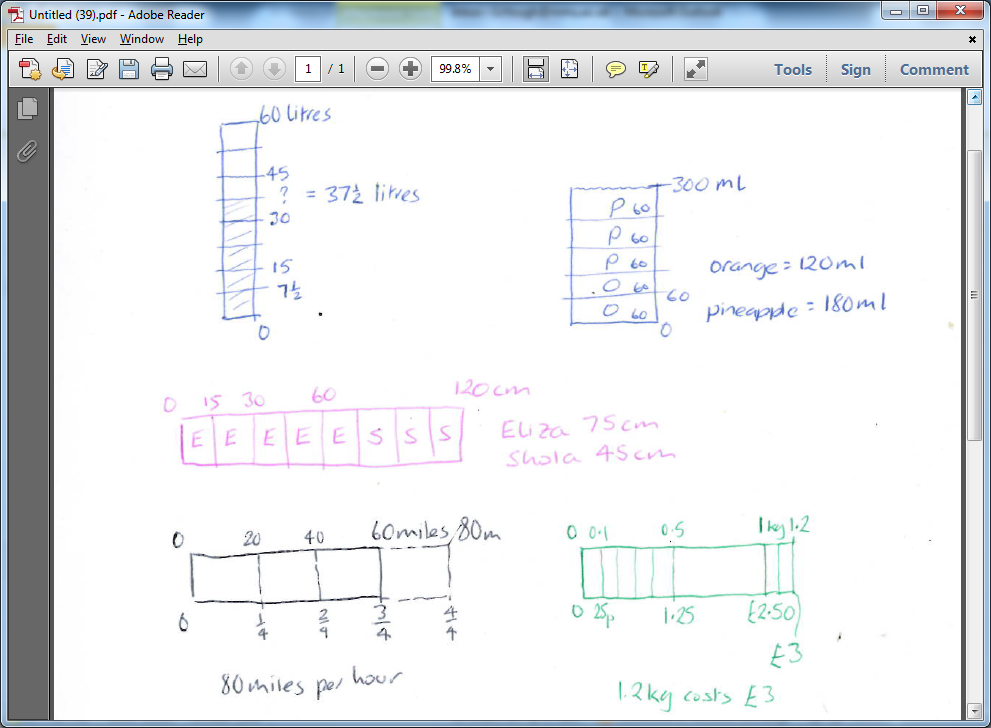 Untitled (39).pdf - Adobe Reader
File Edit View Window Help
1 / 1 99.8% Tools Sign Comment
60 litres
45
? = 37½ litres
30
15
7½
0
300 ml
P 60
P 60
P 60
O 60
60
O 60
0
orange = 120ml
pineapple = 180ml
0 15 30 60 120cm
E E E E E S S S
Eliza 75cm
Shola 45cm
0 20 40 60miles 80m
0 1/4 2/4 3/4 4/4
80miles per hour
0 0.1 0.5 1kg 1.2
0 25p 1.25 £2.50
£3
1.2kg costs £3